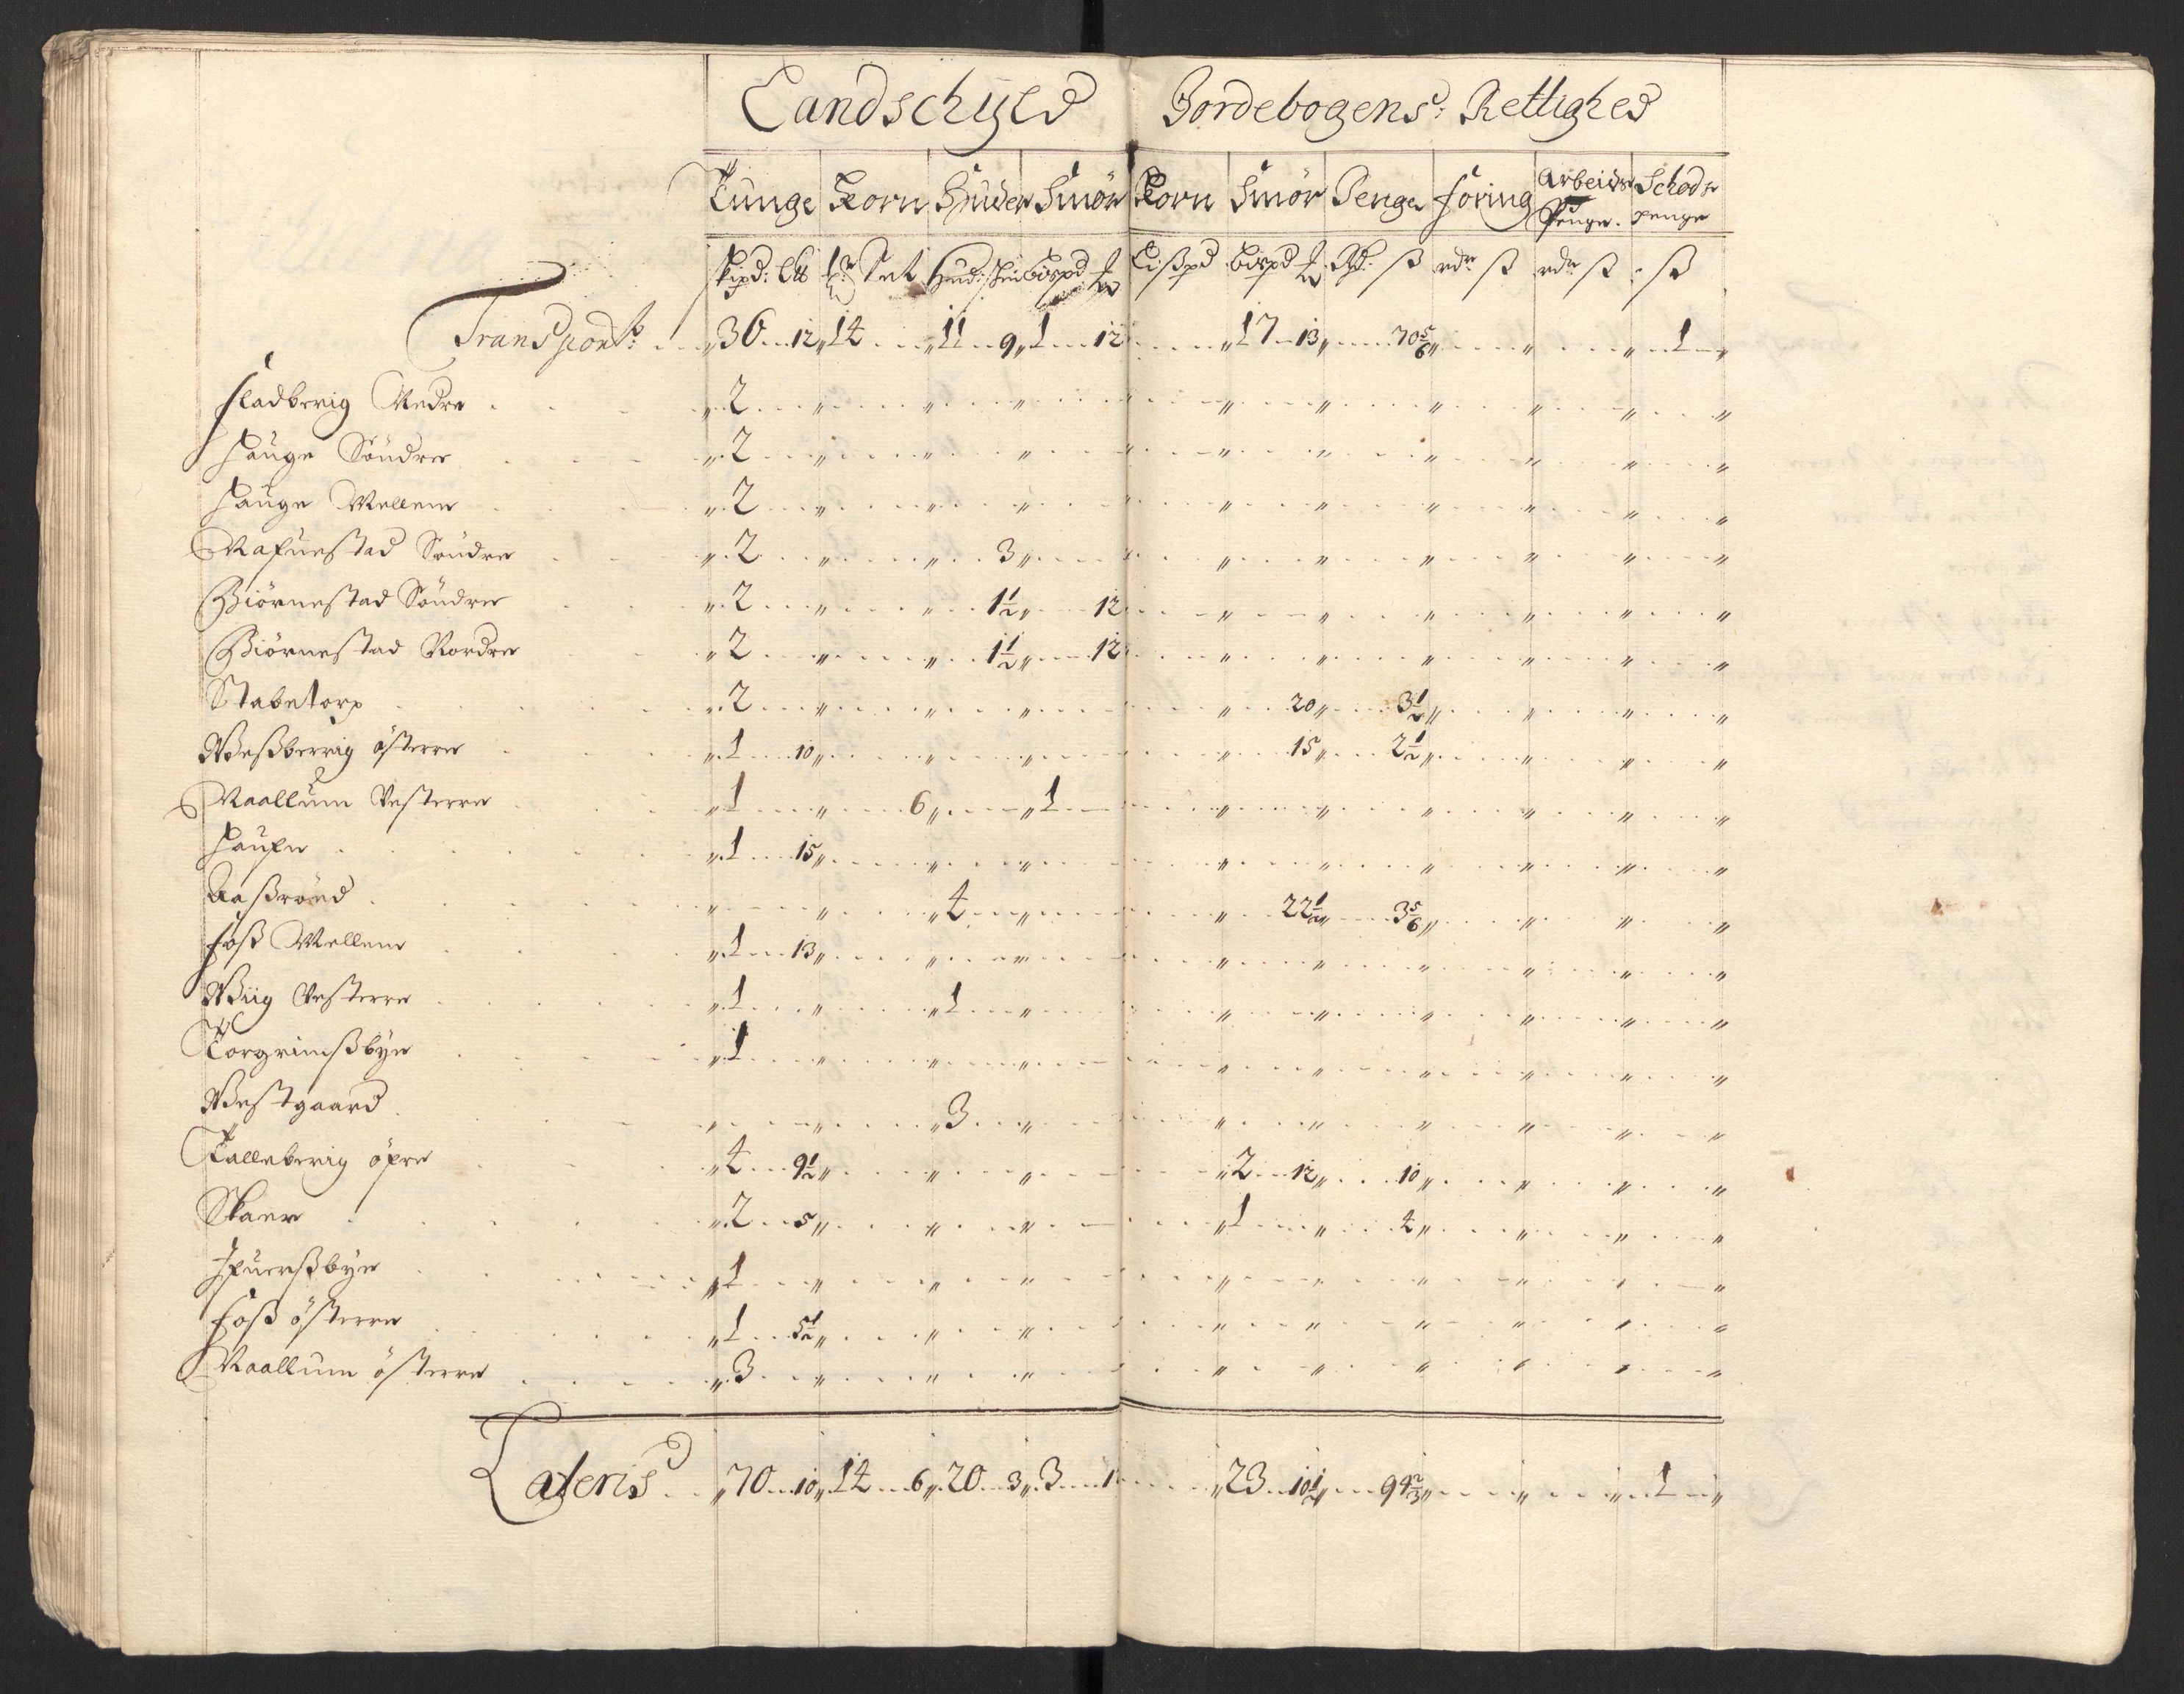 Landschyld Jordebogens: Rettighed
Tunge Korn Huder Smör Korn Smör Penge foring Arbeids Penge. Schods penge
Skpd: Lb Set Hud: skin Bispd Lißpd Bispd Rd: ß rdr ß rdr ß ß
Transport: 36 12 14 11 9 1 12 17 13 70 5/6 1
fladberig Nedre 2
Hauge Söndre 2
Hauge Mellem 2
Nafuestad Söndre 2 3
Biörnestad Söndre 2 1 1/2 12
Biörnestad Nordre 2 1 1/2 12
Stabetorp 2 20 3 1/2
Weßberrig österre 1 10 15 2 1/2
Naallum Vesterre 1 6 1
Haufue 1 15
Aaßröed 4 22 1/2 3 5/6
foß Mellem 1 13
Wiig Vesterre 1 1
Torgrimßbÿe 1
Westgaard 3
Talleberig öfre 4 9 1/2 2 12 10
Skaer 2 5 1 4
Ifuerßbye 1
foß österre 1 5 1/2
Naallum österre 3
Lateris 70 10 14 6 20 3 3 1 23 10 1/2 94 2/3 1